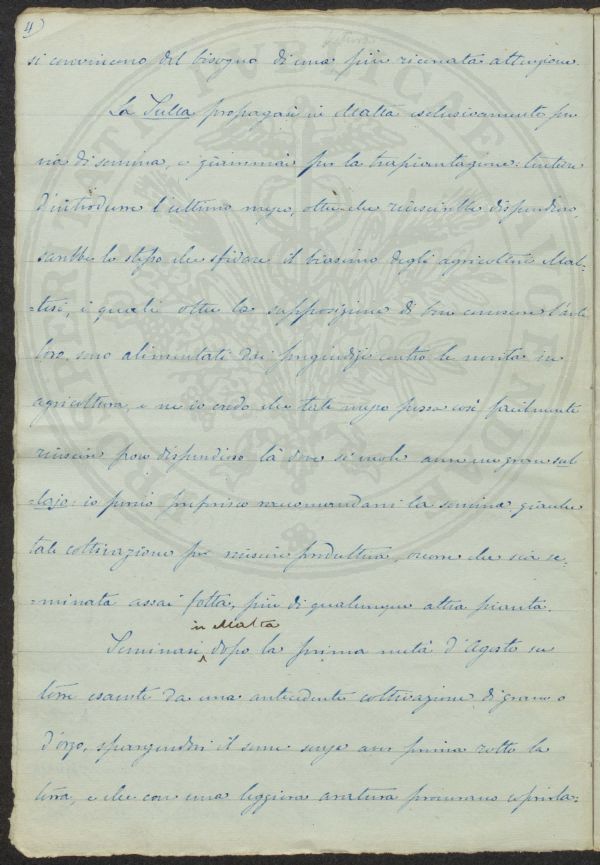 4)
si convincono del bisogno di una più ricercata attenzione.
La Sulla propagasi in Malta esclusivamente per
via di semina, e giammai per la trapiantazione: tentare
d'introdurre l'ultimo mezzo, oltre che riuscirebbe dispendioso,
sarebbe lo stesso che sfidare il biasimo degli agricoltori Mal-
-tesi, i quali oltre la supposizione di ben conoscere l'arte
loro, sono alimentati dai pregiudizi contro le novità in
agricoltura, e ne io credo che tale mezzo possa così facilmente
riuscire poco dispendioso là dove si vuole avere un gran sul-
-lajo: io perciò preferisco raccomandarsi la semina, giacchè
tale coltivazione per riuscire produttiva, occorre che sia se-
-minata assai fotta, più di qualunque altra pianta.
in Malta
Seminasi, dopo la prima metà d'Agosto su
terre esaurite da una antecedente coltivazione di grano o
d'orzo, spargendosi il seme senza aver prima rotto la
terra, e che con una leggiera aratura procurano coprirla: